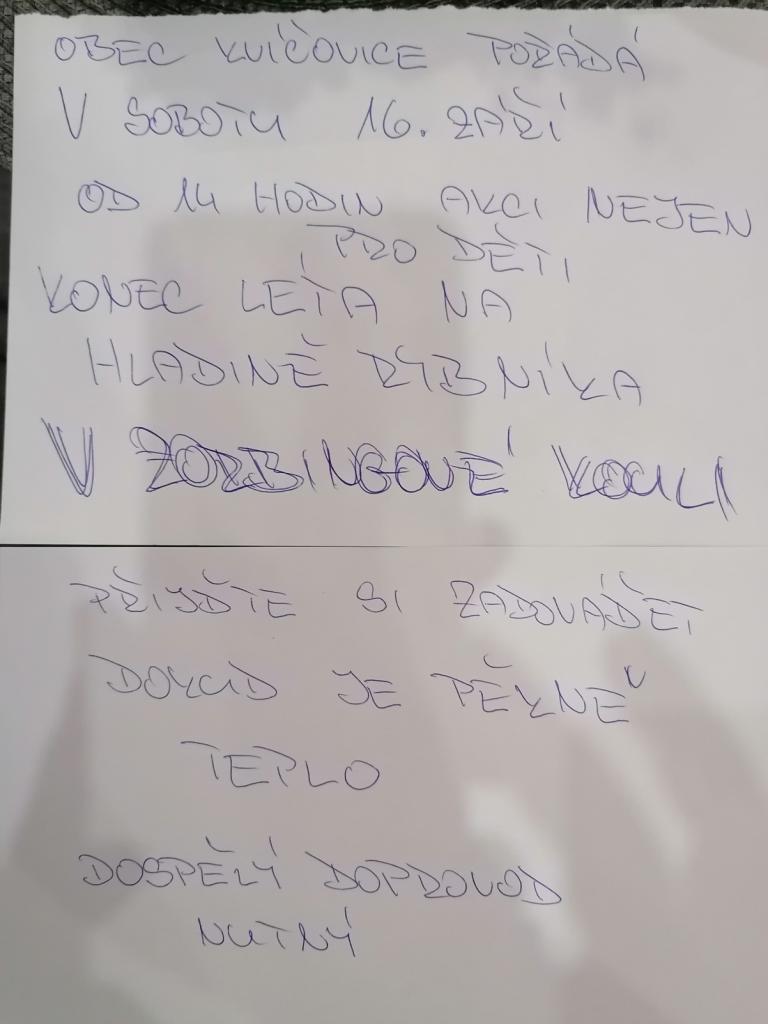 OBEC KVÍČOVICE POŘÁDÁ
V SOBOTU 16. ZÁŘÍ
OD 14 HODIN AKCI NEJEN
PRO DĚTI
KONEC LÉTA NA
HLADINĚ RYBNÍKA
V ZORBINGOVÉ KOULI
PŘIJĎTE SI ZADOVÁDĚT
DOKUD JE PĚKNĚ
TEPLO
DOSPĚLÝ DOPROVOD
NUTNÝ